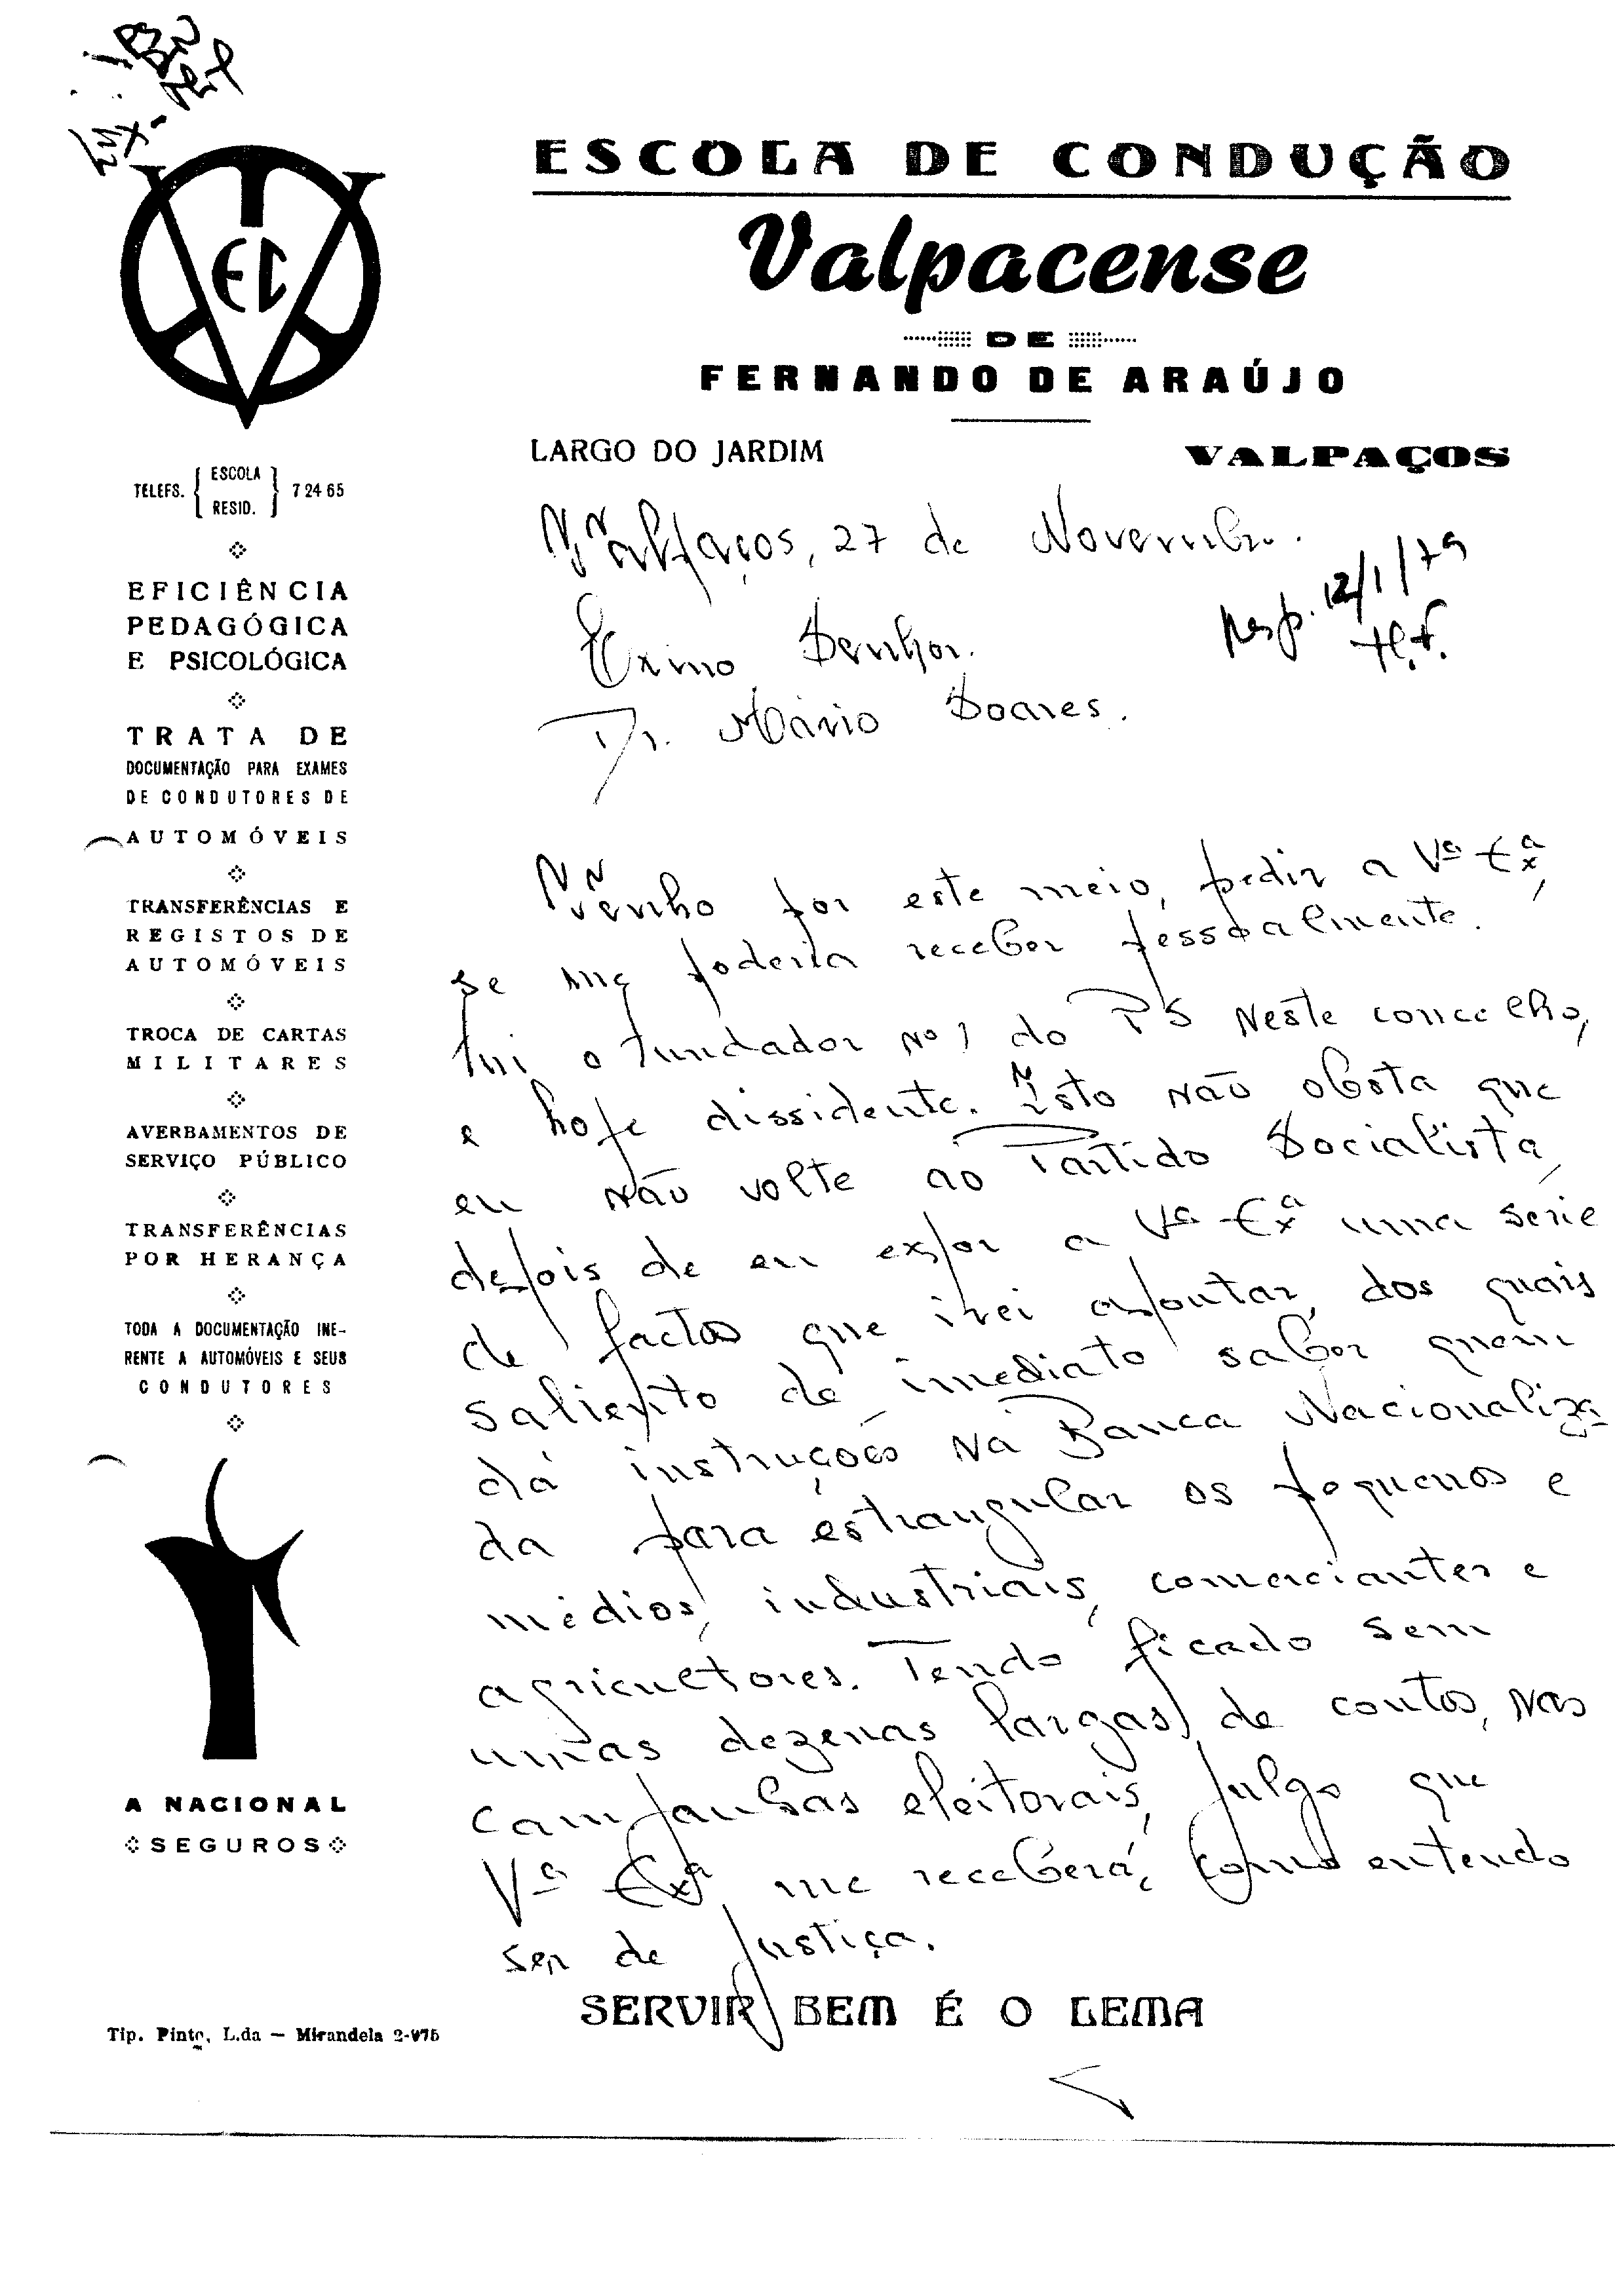 ESCOLA DE CONDUÇÃO
Valpacense
DE
FERNANDO DE ARAÚJO
LARGO DO JARDIM VALPAÇOS
TELEFS. ESCOLA RESID. 7 24 65
EFICIÊNCIA
PEDAGÓGICA
E PSICOLÓGICA
TRATA DE
DOCUMENTAÇÃO PARA EXAMES
DE CONDUTORES DE
AUTOMÓVEIS
TRANSFERÊNCIAS E
REGISTOS DE
AUTOMÓVEIS
TROCA DE CARTAS
MILITARES
AVERBAMENTOS DE
SERVIÇO PÚBLICO
TRANSFERÊNCIAS
POR HERANÇA
TODA A DOCUMENTAÇÃO INE-
RENTE A AUTOMÓVEIS E SEUS
CONDUTORES
A NACIONAL
SEGUROS
Valpaços, 27 de Novembro.
Resp. 12/1/79
Exmo Senhor.
Dr. Mário Soares.
Venho por este meio, pedir a Vª Exª,
se me poderia receber pessoalmente.
Fui o fundador nº 1 do PS neste concelho,
e hoje dissidente. Isto não obsta que
eu não volte ao Partido Socialista,
depois de eu expor a Vª Exª uma serie
de factos que irei apontar, dos quais
saliento de imediato saber quem
dá instruções na Banca Nacionaliza
da para estrangular os pequenos e
médios, industriais, comerciantes e
agricultores. Tendo ficado sem
umas dezenas largas, de contos, nas
campanhas eleitorais, julgo que
Vª Exª me receberá, como entendo
ser de justiça.
SERVIR BEM É O LEMA
Tip. Pinto, L.da — Mirandela 2-975